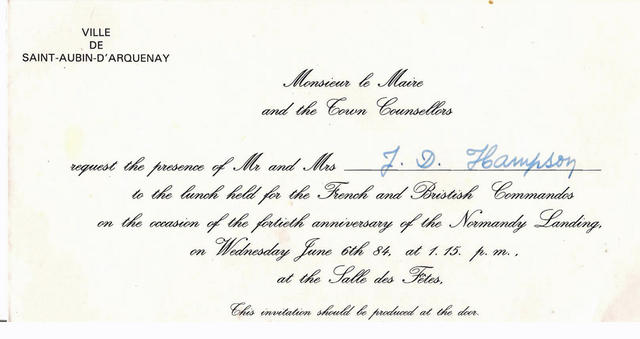 VILLE
DE
SAINT-AUBIN-D'ARQUENAY
Monsieur le Maire
and the Town Counsellors
request the presence of Mr and Mrs J. D. Hampson
to the lunch held for the French and Bristish Commandos
on the occasion of the fortieth anniversary of the Normandy Landing,
on Wednesday June 6th 84, at 1.15. p.m.,
at the Salle des Fêtes,
This invitation should be produced at the door.